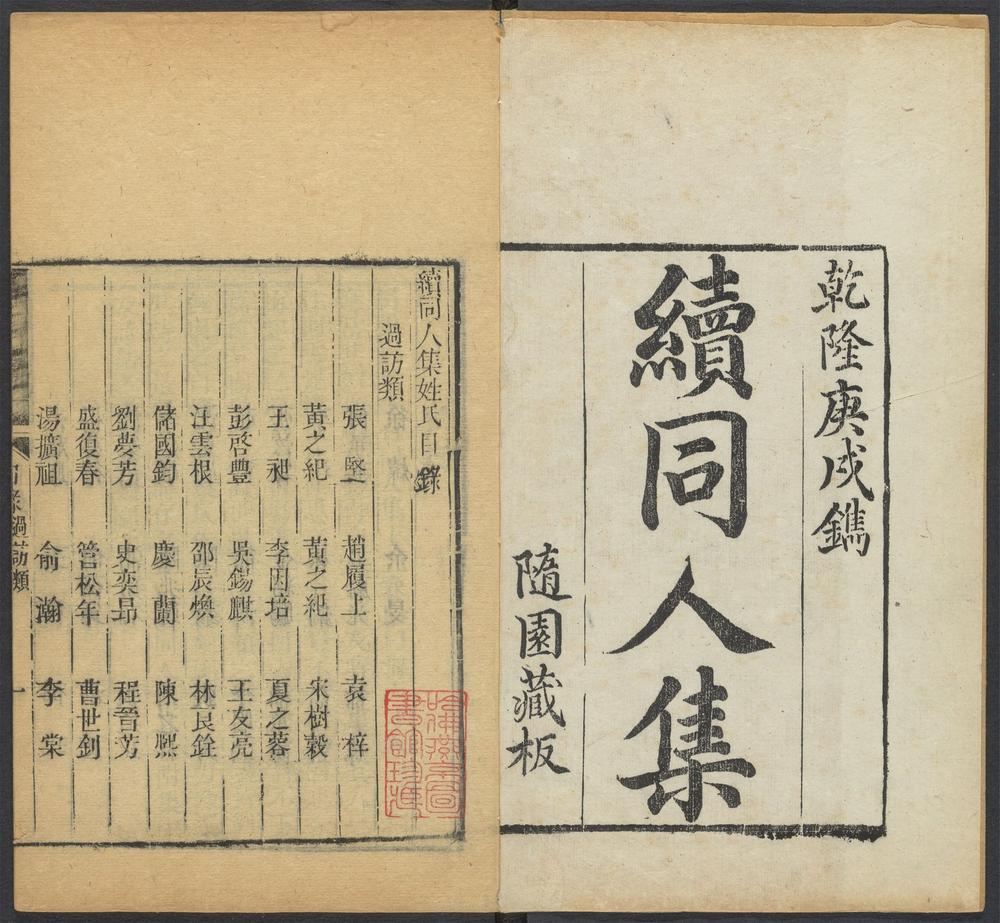 乾隆庚戌鐫
續同人集
隨園藏板
續同人集姓氏目錄
過訪類
張堅 趙履上 袁梓
黃之紀 黃之紀 宋樹穀
王昶 李因培 夏之蓉
彭啓豐 吳錫麒 王友亮
汪雲根 邵辰煥 林艮銓
儲國鈞 慶蘭 陳熙
劉夢芳 史奕昂 程晉芳
盛復春 管松年 曹世釗
湯擴祖 俞瀚 李棠
目錄過訪類 一
哈佛燕京圖書館珍藏